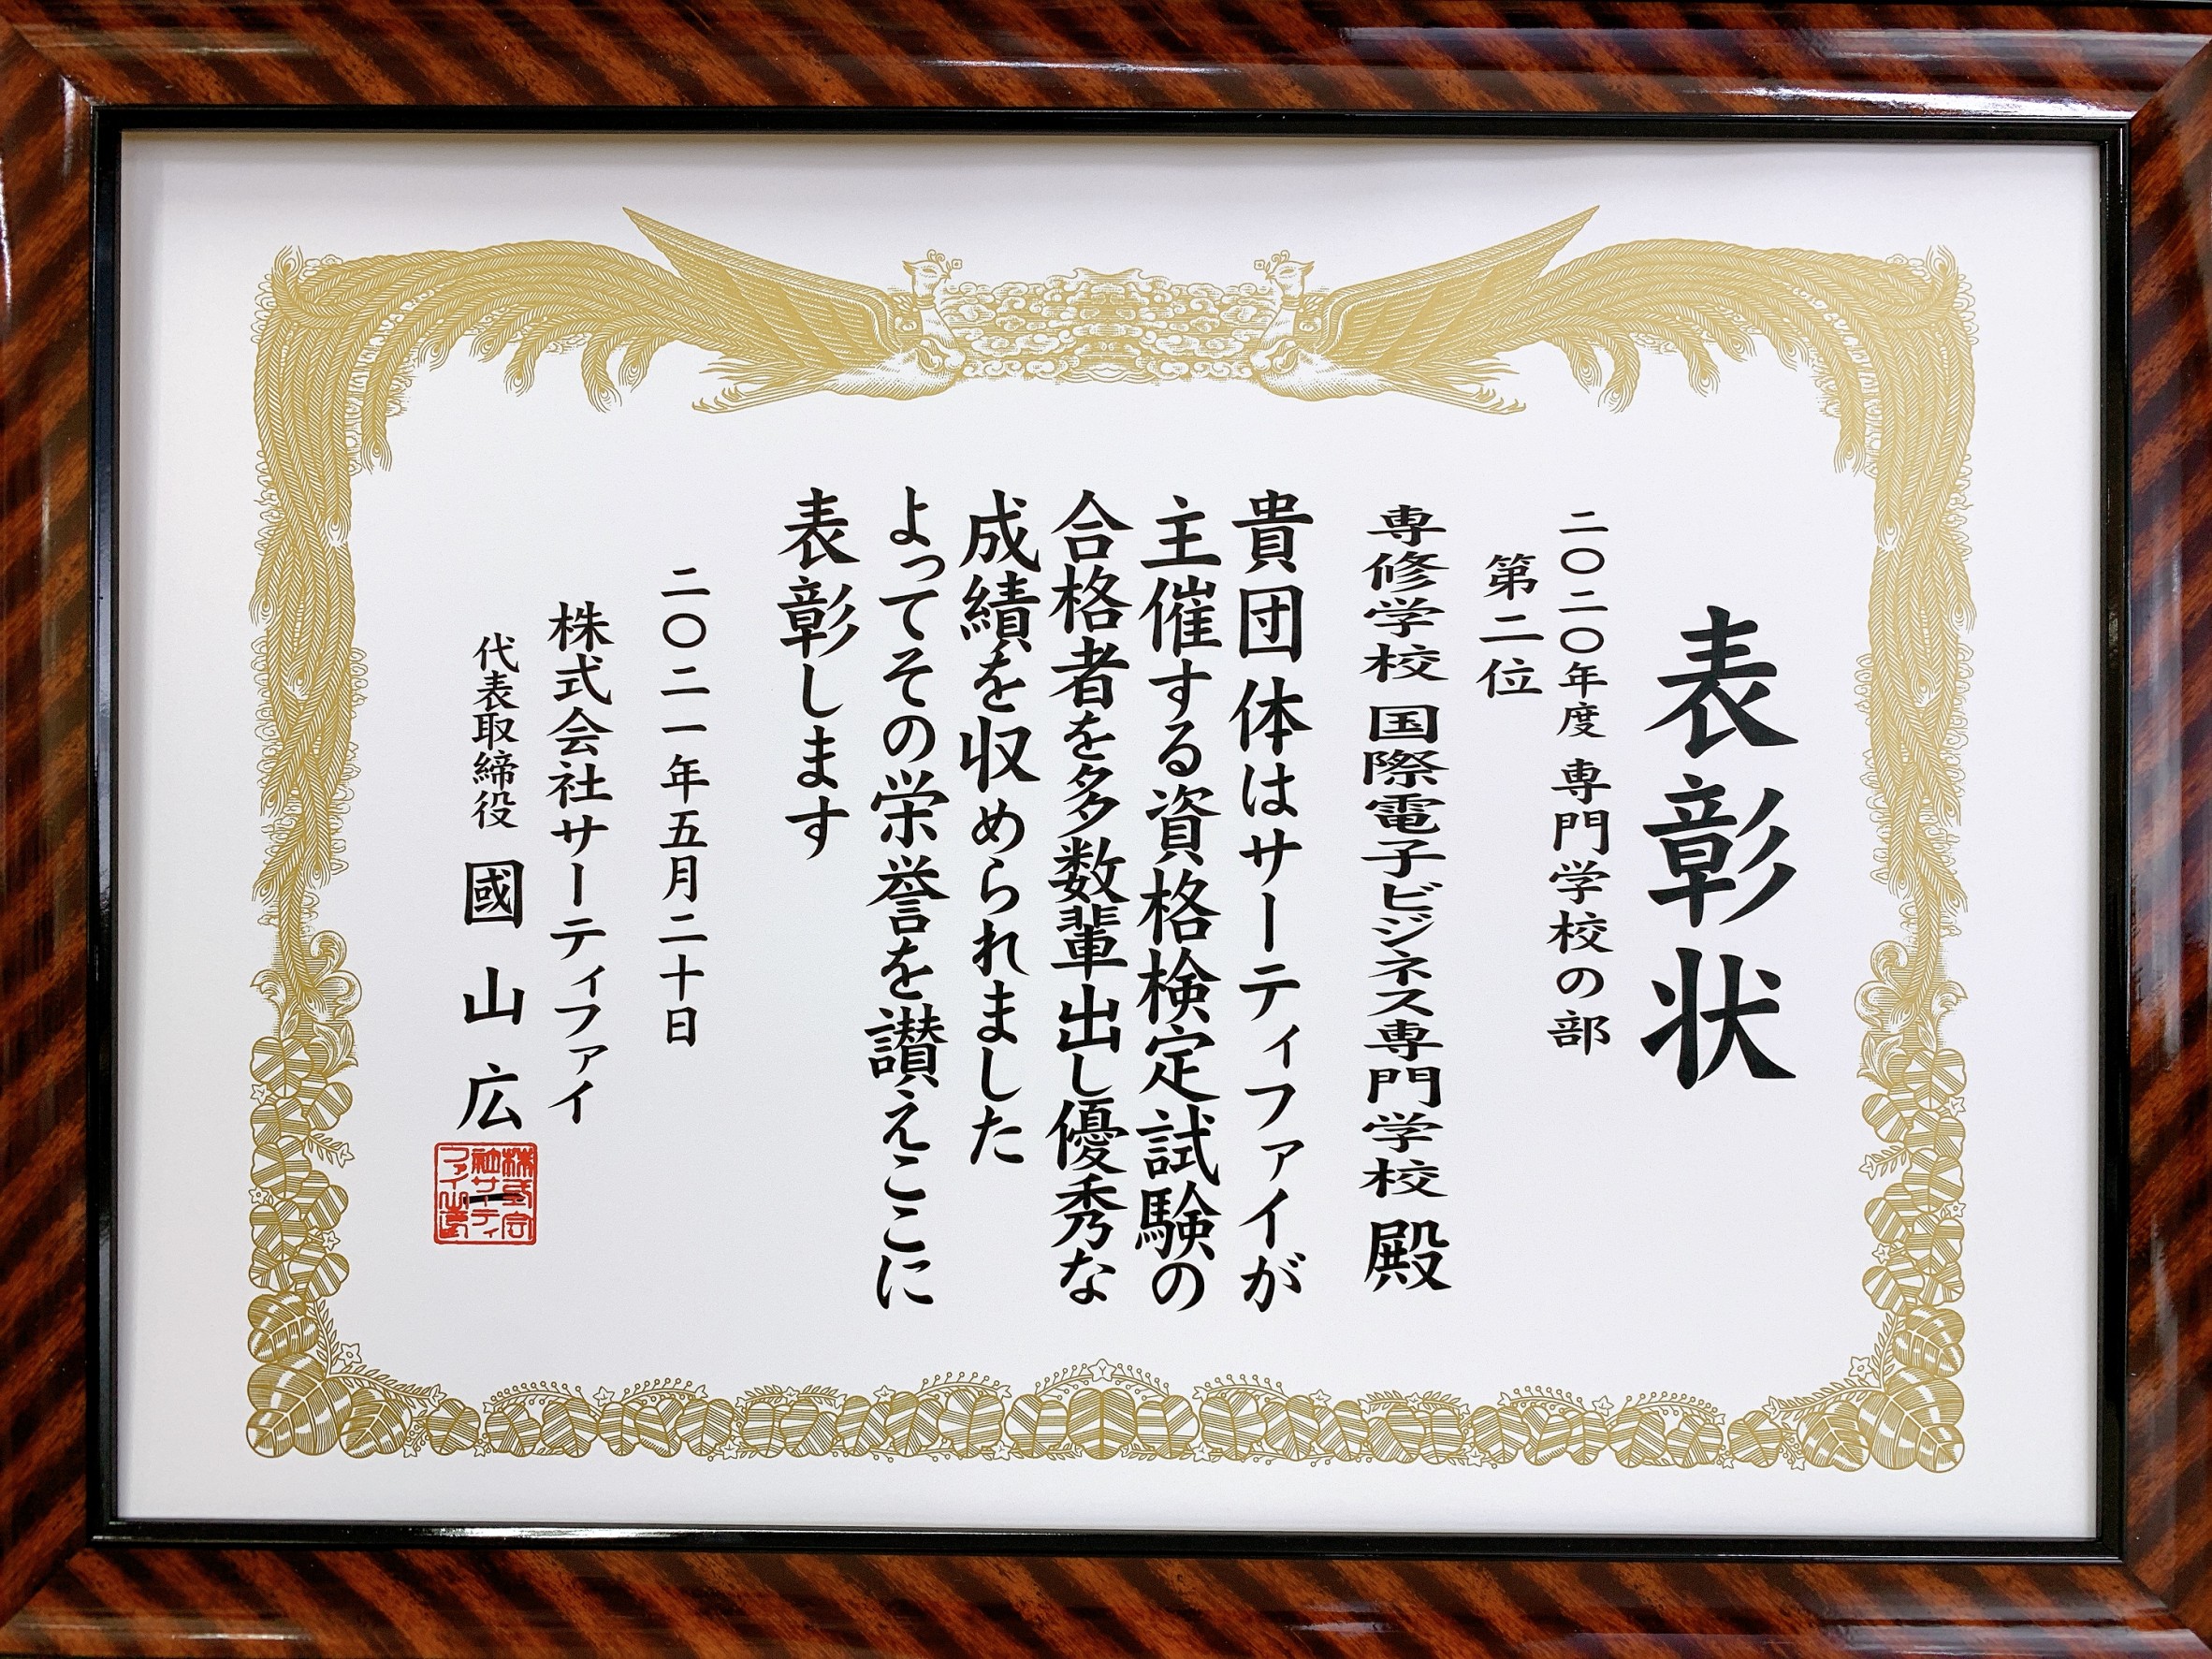 表彰状
二〇二〇年度 専門学校の部
第二位
専修学校 国際電子ビジネス専門学校 殿
貴団体はサーティファイが
主催する資格検定試験の
合格者を多数輩出し優秀な
成績を収められました
よってその栄誉を讃えここに
表彰します
二〇二一年五月二十日
株式会社サーティファイ
代表取締役 國山広